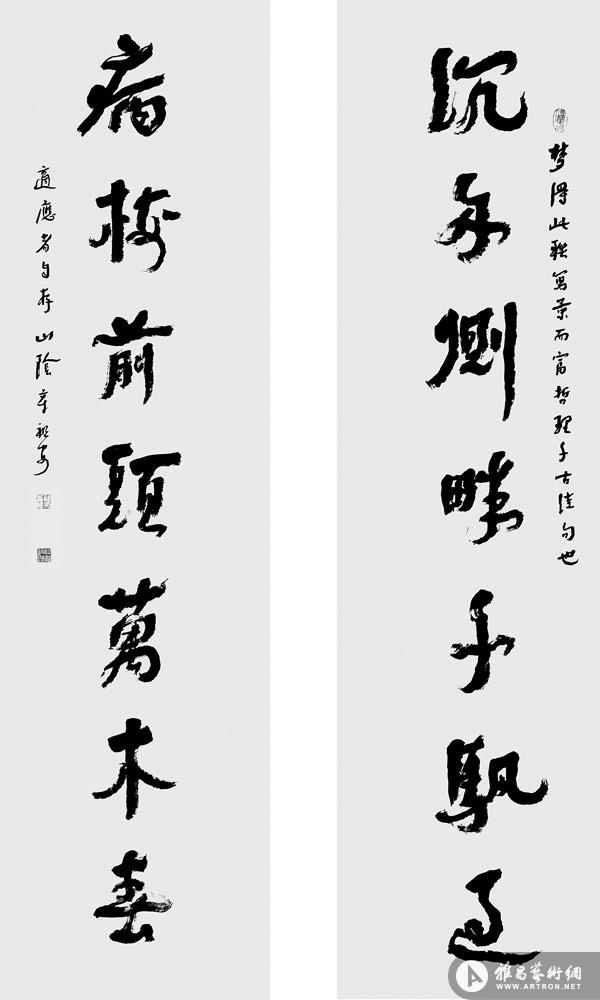 梦得此聯寫景而富哲理千古佳句也
沉舟側畔千颿過
病樹前頭萬木春
適應者自存 山陰章祖安
雅昌藝術網
WWW.ARTRON.NET